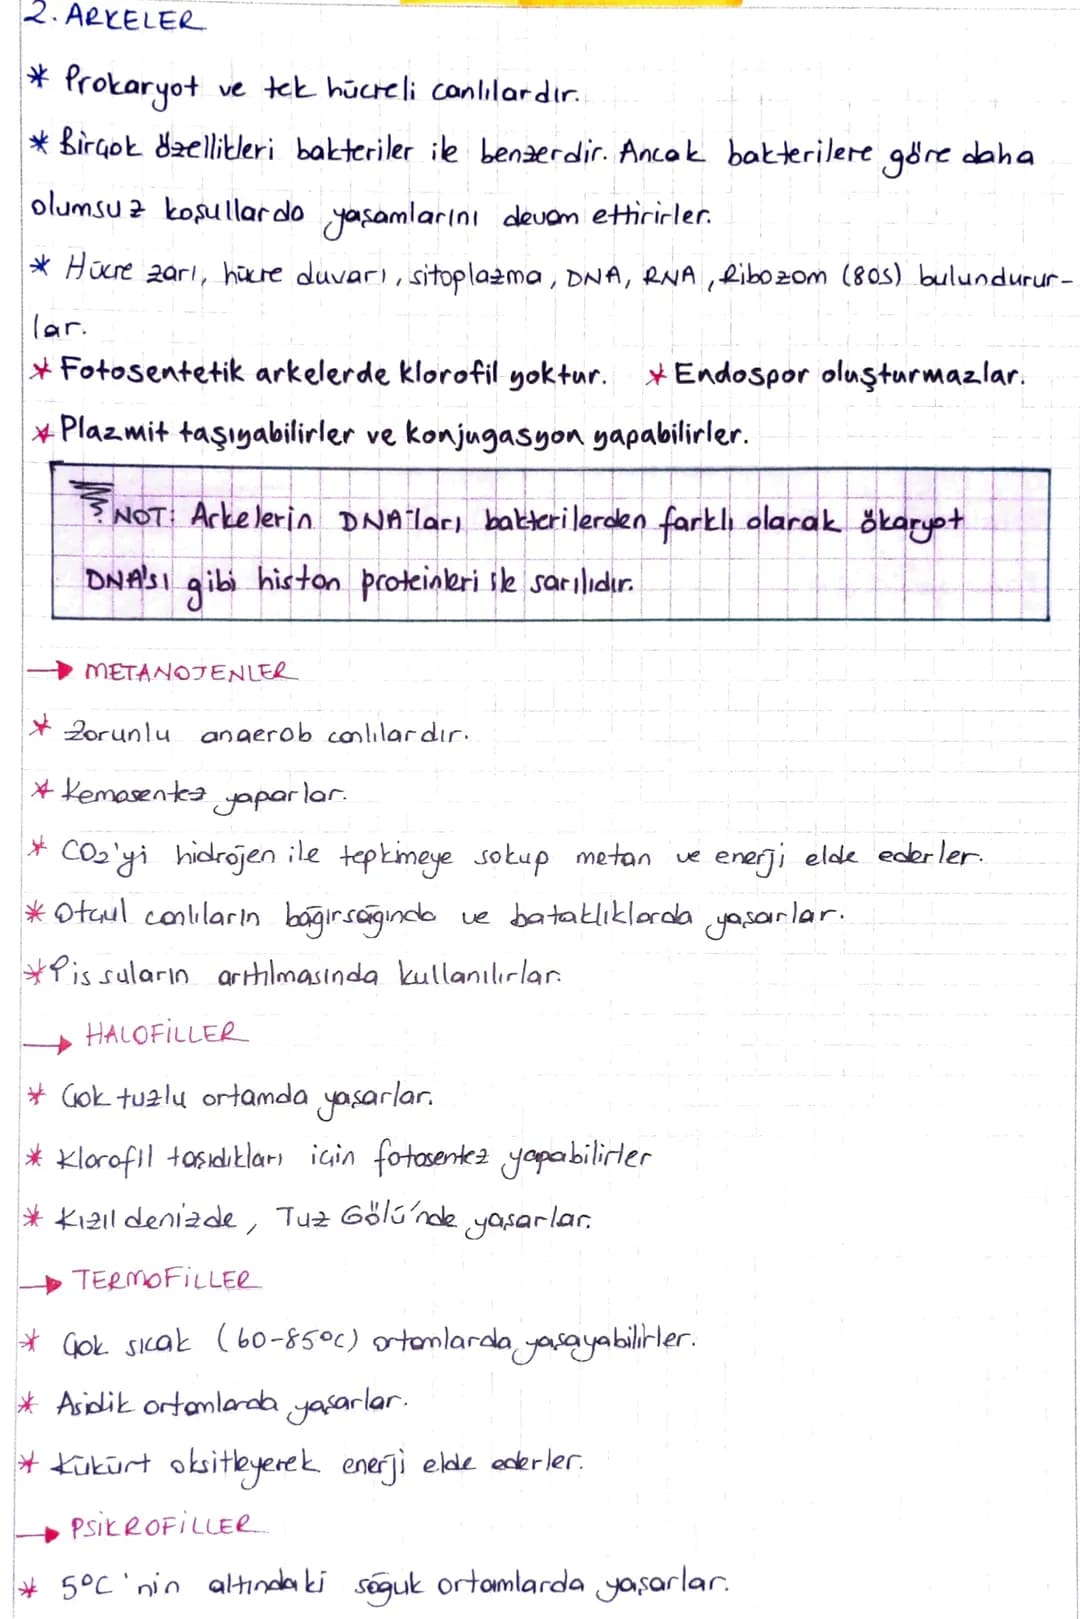 2. ARKELER
* Prokaryot ve tek hücreli canlılardır.
* Birçok özellikleri bakteriler ile benzerdir. Ancak bakterilere göre daha
olumsuz koşullarda yaşamlarını devam ettirirler.
* Hücre zarı, hücre duvarı, sitoplazma, DNA, RNA, Ribozom (80S) bulundurur-
lar.
* Fotosentetik arkelerde klorofil yoktur. * Endospor oluşturmazlar.
* Plazmit taşıyabilirler ve konjugasyon yapabilirler.
NOT: Arkelerin DNA'ları bakterilerden farklı olarak ökaryot
DNA'sı gibi histon proteinleri ile sarılıdır.
→ METANOJENLER
* Zorunlu anaerob canlılardır.
* Kemosentez yaparlar.
* CO₂'yi hidrojen ile tepkimeye sokup metan ve enerji elde ederler.
* Otçul canlıların bağırsağında ve bataklıklarda yaşarlar.
* Pis suların arıtılmasında kullanılırlar.
→ HALOFİLLER
* Çok tuzlu ortamda yaşarlar.
* Klorofil taşıdıkları için fotosentez yapabilirler
* Kızıl denizde, Tuz Gölü'nde yaşarlar.
→ TERMOFİLLER
* Çok sıcak (60-85°C) ortamlarda yaşayabilirler.
* Asidik ortamlarda yaşarlar.
* Kükürt oksitleyerek enerji elde ederler.
→ PSİKROFİLLER
* 5°C'nin altındaki soğuk ortamlarda yaşarlar.